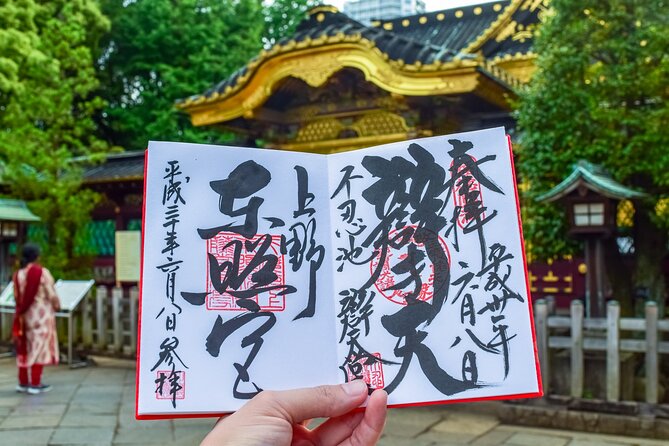 奉拝
平成卅年
六月八日
辯才天
不忍池
辯天堂
上野
東照宮
平成三十年六月八日参拝